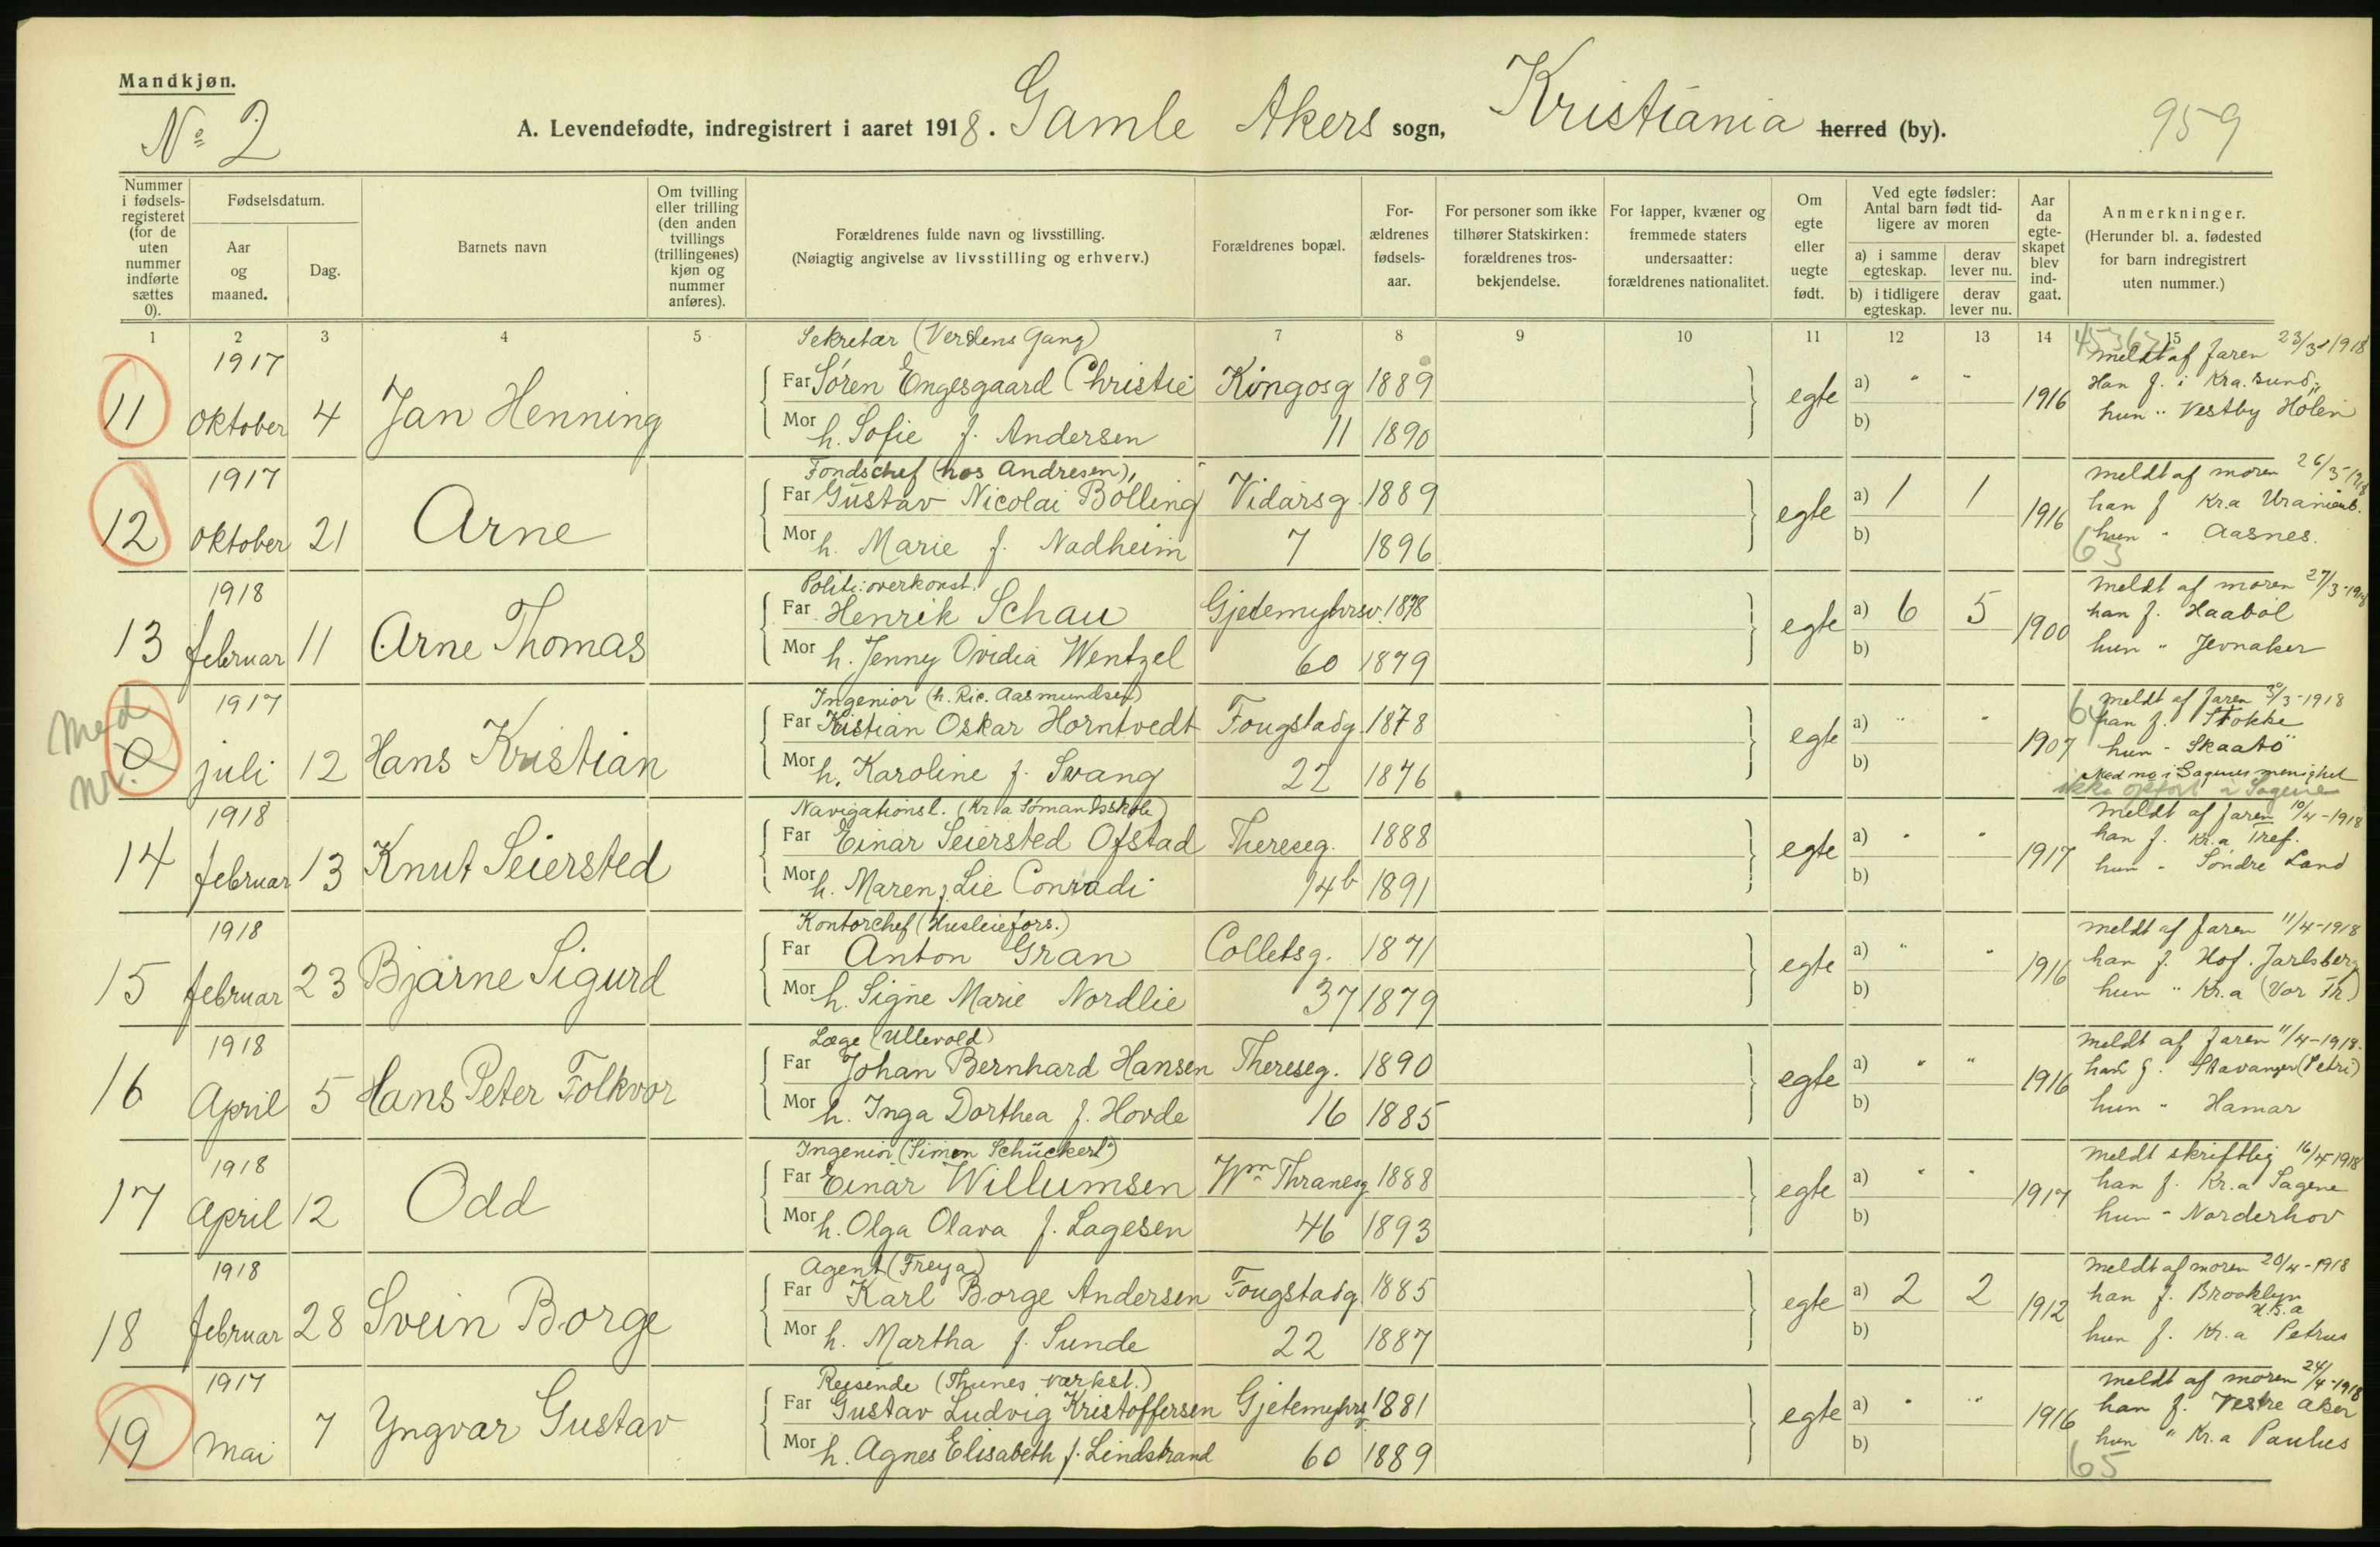 Mandkjøn.
No 2
A. Levendefødte, indregistrert i aaret 1918. Gamle Akers sogn, Kristiania herred (by).
959
Nummer i fødselsregisteret (for de uten nummer indførte sættes 0).
Fødselsdatum.
Aar og maaned.
Dag.
Barnets navn
Om tvilling eller trilling (den anden tvillings (trillingenes) kjøn og nummer anføres).
Forældrenes fulde navn og livsstilling.
(Nøiagtig angivelse av livsstilling og erhverv.)
Forældrenes bopæl.
Forældrenes fødselsaar.
For personer som ikke tilhører Statskirken: forældrenes trosbekjendelse.
For lapper, kvæner og fremmede staters undersaatter: forældrenes nationalitet.
Om egte eller uegte født.
Ved egte fødsler: Antal barn født tidligere av moren
a) i samme egteskap. derav lever nu.
b) i tidligere egteskap. derav lever nu.
Aar da egteskapet blev indgaat.
Anmerkninger.
(Herunder bl. a. fødested for barn indregistrert uten nummer.)
1 2 3 4 5 6 7 8 9 10 11 12 13 14 15
1917 Sekretær (Verdens Gang) meldt af faren 23/3-1918
11 oktober 4 Jan Henning Far Søren Engesgaard Christie Kingosg 1889 egte a) " " 1916 Han f. i Kra.sund,
Mor h. Sofie f. Andersen 11 1890 b) hun " Vestby Hølen
1917 Fondschef (hos Andresen), meldt af moren 26/3-1918
12 oktober 21 Arne Far Gustav Nicolai Bolling Vidarsg 1889 egte a) 1 1 1916 han f Kr.a Uranienb.
Mor h. Marie f. Nadheim 7 1896 b) hun " Aasnes.
63
1918 Politi:overkonst. meldt af moren 27/3-1918
13 februar 11 Arne Thomas Far Henrik Schau Gjetemyhrsv. 1878 egte a) 6 5 1900 han f. Haabøl
Mor h. Jenny Ovidia Wentzel 60 1879 b) hun " Jevnaker
1917 Ingeniør (h. Ric. Aasmundsen) 64 meldt af faren 3%3-1918
Med nr. 0 juli 12 Hans Kristian Far Kristian Oskar Horntvedt Fougstadg. 1878 egte a) " " 1907 han f. Stokke
Mor h. Karoline f. Svang 22 1876 b) hun - Skaatø
Med no i Sagenes menighet
ikke opført i Sagene
1918 Navigationsl. (Kr.a Sømandsskole) meldt af faren 10/4-1918
14 februar 13 Knut Seiersted Far Einar Seiersted Ofstad Thereseg. 1888 egte a) " " 1917 han f. Kr.a Tref.
Mor h. Maren f. Lie Conradi 14b 1891 b) hun - Søndre Land
1918 Kontorchef (Husleiefors.) meldt af faren 11/4-1918
15 februar 23 Bjarne Sigurd Far Anton Gran Colletsg. 1871 egte a) " " 1916 han f. Hof. Jarlsberg
Mor h. Signe Marie Nordlie 37 1879 b) hun " Kr.a (Vor Fr.)
1918 Læge (Ullevold) meldt af faren 11/4-1918.
16 April 5 Hans Peter Folkvor Far Johan Bernhard Hansen Thereseg. 1890 egte a) " " 1916 han f. Stavanger (Petri)
Mor h. Inga Dorthea f. Hovde 16 1885 b) hun " Hamar
1918 Ingeniør (Simen Schückert) meldt skriftlig 16/4-1918
17 April 12 Odd Far Einar Willumsen Wm Thranesg 1888 egte a) " " 1917 han f. Kr.a Sagene
Mor h. Olga Olava f. Lagesen 46 1893 b) hun - Norderhov
1918 Agent (Freya) meldt af moren 20/4-1918
18 februar 28 Svein Borge Far Karl Borge Andersen Fougstadg 1885 egte a) 2 2 1912 han f. Brooklyn U.S.a
Mor h. Martha f. Sunde 22 1887 b) hun f. Kr.a Petrus
1917 Reisende (Thunes værkst.) meldt af moren 24/4-1918
19 mai 7 Yngvar Gustav Far Gustav Ludvig Kristoffersen Gjetemyhrsv 1881 egte a) " " 1916 han f. Vestre aker
Mor h. Agnes Elisabeth f. Lindstrand 60 1889 b) hun " Kr.a Paulus
65